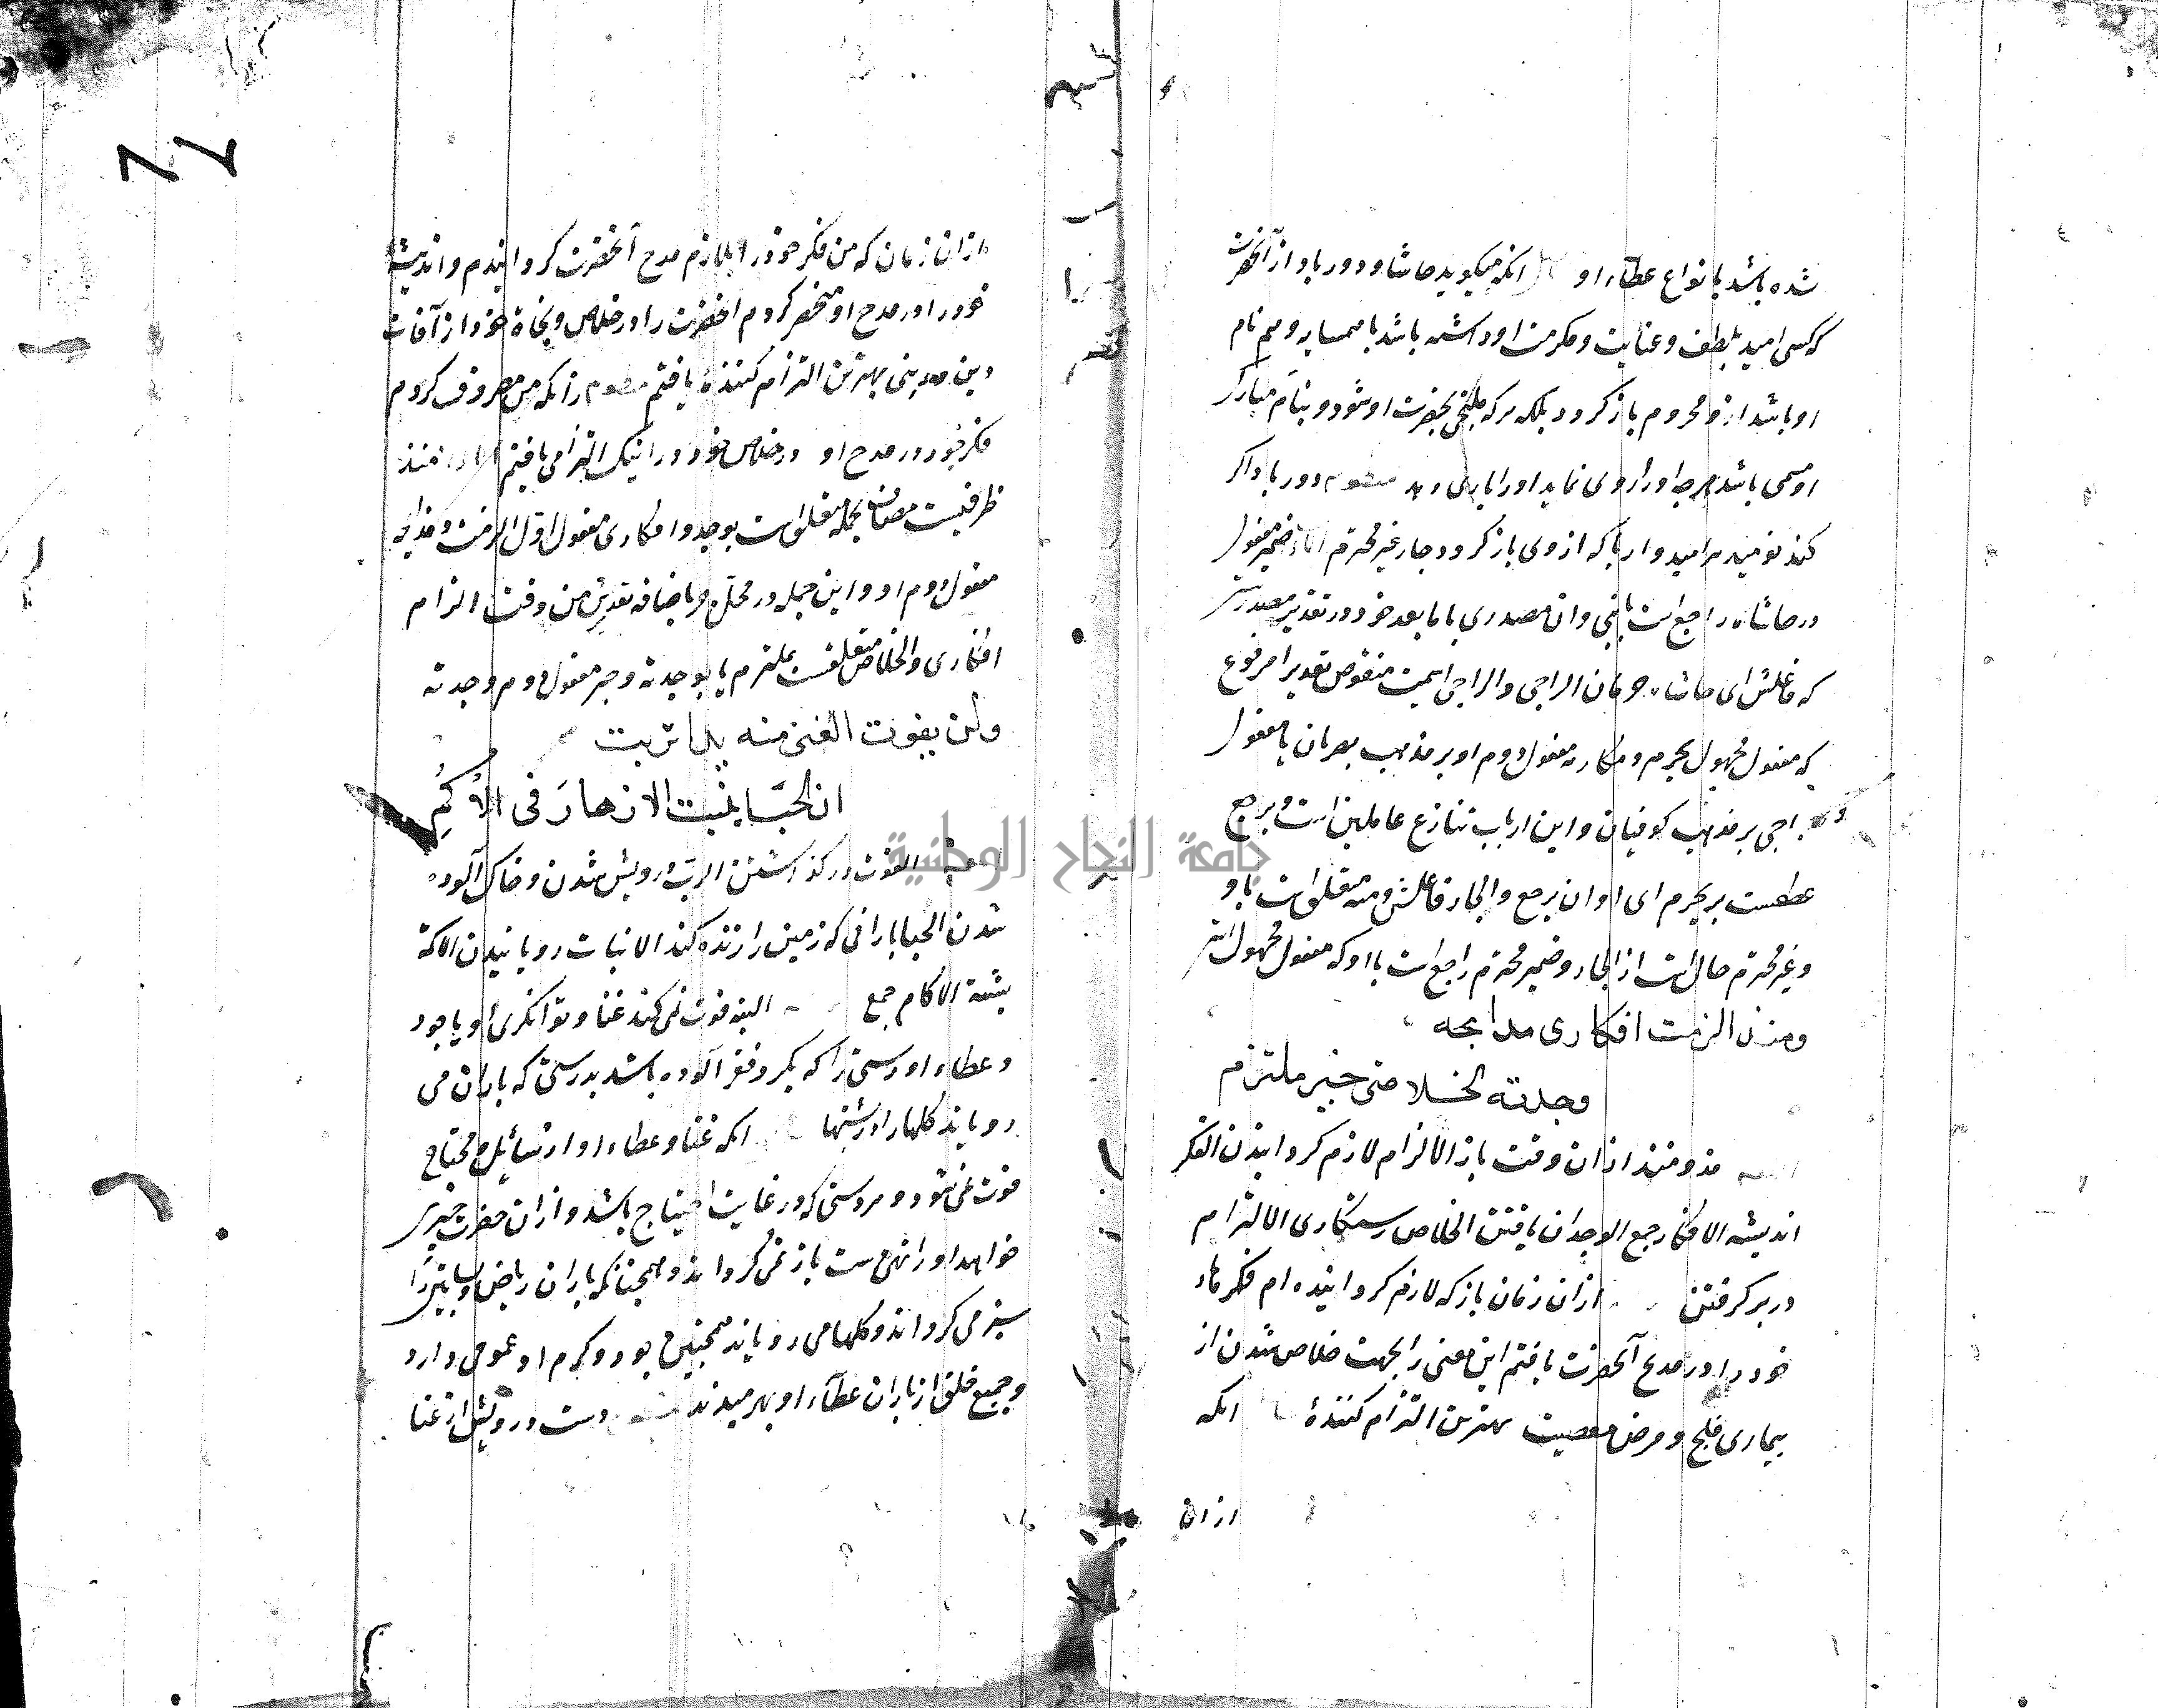 شده باشد بانواع عطاء او انکه میکوید حاشا و دور باد از آنحضرت
که کسی امید بلطف و عنایت و مکرمت او داشته باشد یا همسایه و هم نام
او باشد ازو محروم باز کردد بلکه هرکه ملتجی بحضرت او شود و بنام مبارک
او مسمی باشد هرچه او را روی نماید او را دهد دور باد اکر
کند نومید امیدوار یا که از وی باز کردد جار غیر محترم ضمیر مفعول
در حاشاه راجع است بنبی و ان مصدری با ما بعد خود در تقدیر مصدریست
که فاعلش ای حاشاه حرمان الراجی والراجی اسمیت منقوص تقدیرا مرفوع
که مفعول مجهول یحرم و مکارمه مفعول دوم او بر مذهب بصریان یا مفعول
راجی بر مذهب کوفیان و این ارباب تنازع عاملین است و یرجع
عطفست بر یحرم ای او ان یرجع و الجار فاعلش و منه متعلق است باو
و غیر محترم حال است از الجار و ضمیر محترم راجع است باو که مفعول مجهول است
ومنذ الزمت افکاری مدایحه
وجدته لخلاصی خیر ملتزم
مذ و منذ از ان وقت باز الالزام لازم کردانیدن الفکر
اندیشه الافکار جمع الوجدان یافتن الخلاص رستکاری الالتزام
در بر کرفتن از ان زمان باز که لازم کردانیده ام فکرهاء
خود را در مدیح آنحضرت یافتم این معنی را بجهت خلاص شدن از
بیماری فلج و مرض معصیت بهترین التزام کننده انکه
از ان
از ان زمان که من فکر خود را ملازم مدح آنحضرت کردانیدم و اندیشهٔ
خود را در مدح او منحصر کردم انحضرت را در خلاص و نجاة خود از آفات
دینی بهترین التزام کننده یافتم زانکه من مصروف کردم
فکر خود در مدح او در خلاص خود ورا نیک التزامی یافتم منذ
ظرفیست مضاف بجمله متعلق است بوجد و افکاری مفعول اول الزمت و مدایحه
مفعول دوم او و این جمله در محل جر باضافه تقدیرش من وقت الزام
افکاری و لخلاصی متعلقست بملتزم یا بوجدته و خیر مفعول دوم وجدته
ولن یفوت الغنی منه یدا تربت
ان الحیا ینبت الازهار فی الأکم
الفوت در کذشتن الترب درویش شدن و خاک آلوده
شدن الحیا بارانی که زمین را زنده کند الانبات رویانیدن الاکمة
پشته الاکام جمع البته فوت نمی کند غنا و توانکری او یا جود
و عطاء او دستی را که بکرد فقر آلوده باشد بدرستی که باران می
رویاند کلها را در پشتها انکه غنا و عطاء او از سائل و محتاج
فوت نمی شود و هر دستی که در غایت احتیاج باشد و از ان حضرت چیزی
خواهد او را تهی دست باز نمی کرداند و همچنانکه باران ریاض و بساتین را
سبز می کرداند و کلها می رویاند همچنین جود و کرم او عمومی دارد
و جمیع خلق از باران عطاء او بهره میدند دست درویش از غنا
جامعة النجاح الوطنية